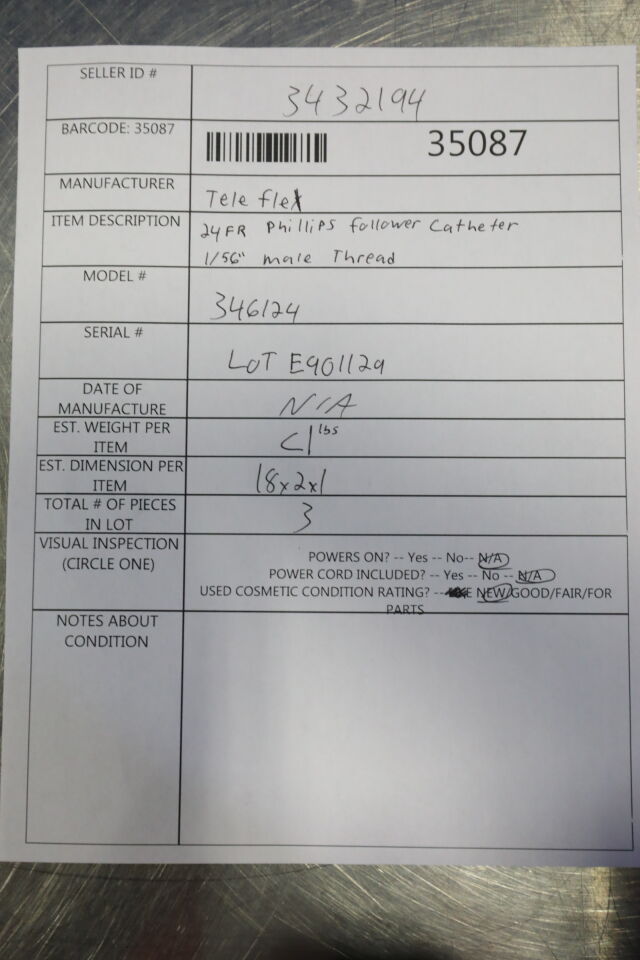 SELLER ID #
3432194
BARCODE: 35087
35087
MANUFACTURER
Teleflex
ITEM DESCRIPTION
24FR Phillips follower Catheter
1/56" male Thread
MODEL #
346124
SERIAL #
LOT E901129
DATE OF
MANUFACTURE
N/A
EST. WEIGHT PER
ITEM
<1 lbs
EST. DIMENSION PER
ITEM
18x2x1
TOTAL # OF PIECES
IN LOT
3
VISUAL INSPECTION
(CIRCLE ONE)
POWERS ON? -- Yes -- No-- N/A
POWER CORD INCLUDED? -- Yes -- No -- N/A
USED COSMETIC CONDITION RATING? -- NEW/GOOD/FAIR/FOR
PARTS
NOTES ABOUT
CONDITION